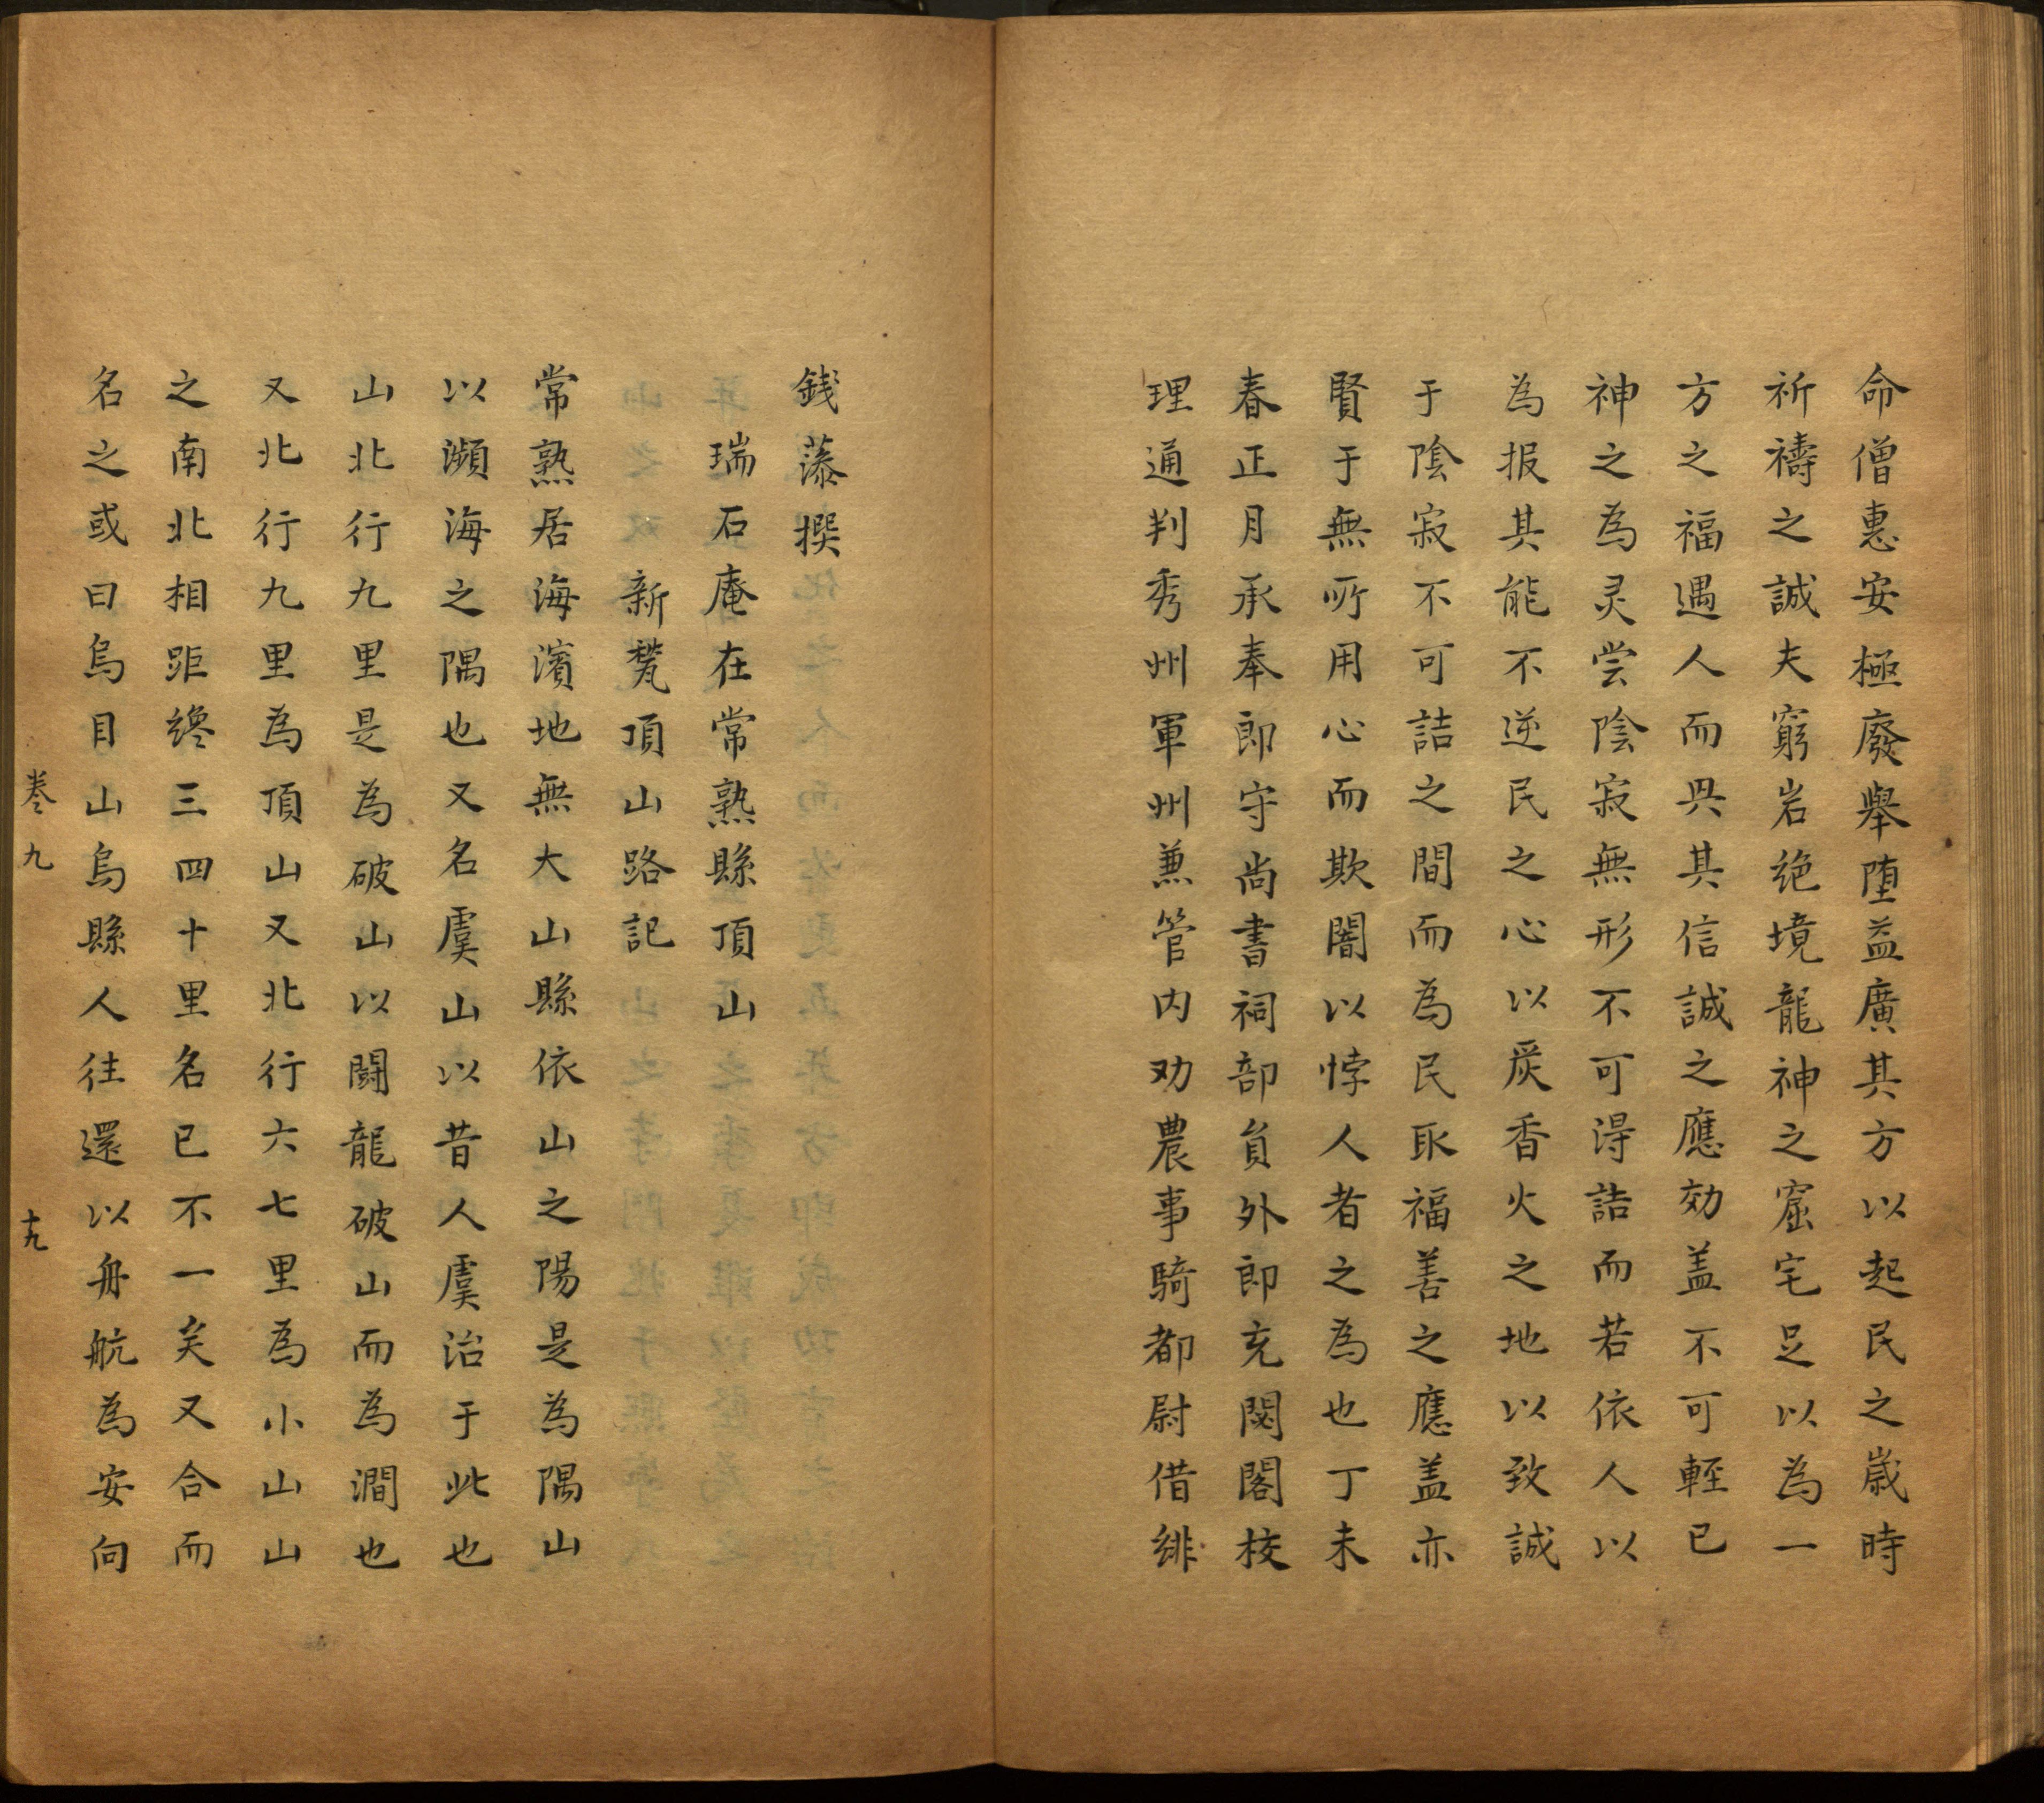 命僧惠安極廢舉堕益廣其方以起民之歳時
祈禱之誠夫窮岩絶境龍神之窟宅足以為一
方之福遇人而與其信誠之應効盖不可輕已
神之為灵尝陰寂無形不可得詰而若依人以
為报其能不逆民之心以炭香火之地以致誠
于陰寂不可詰之間而為民取福善之應盖亦
賢于無所用心而欺闇以悖人者之為也丁未
春正月承奉郎守尚書祠部員外郎充閣校
理通判秀州軍州兼管内劝農事騎都尉借緋
錢藻撰
瑞石庵在常熟縣頂山
新甃頂山路記
常熟居海濱地無大山縣依山之陽是為隅山
以瀕海之隅也又名虞山以昔人虞治于此也
山北行九里是為破山以闘龍破山而為澗也
又北行九里為頂山又北行六七里為小山山
之南北相距纔三四十里名已不一矣又合而
名之或曰烏目山烏縣人往還以舟航為安向
卷九
十九